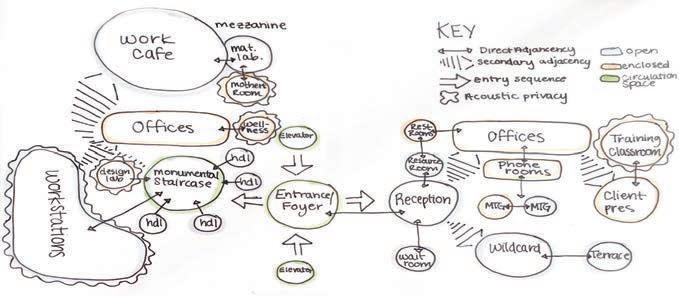 mezzanine
work
cafe
mat.
lab.
mothers
Room
Offices
well-
ness
Elevator
design
lab
monumental
Staircase
hdl
hdl
hdl
hdl
workstations
Entrance/
Foyer
Elevator
KEY
Direct Adjancency
secondary adjacency
Entry sequence
Acoustic privacy
open
enclosed
circulation
space
Rest
Rooms
Resource
Room
Reception
wait
room
Offices
Phone
rooms
MTG
MTG
Training
Classroom
Client
pres
Wildcard
Terrace